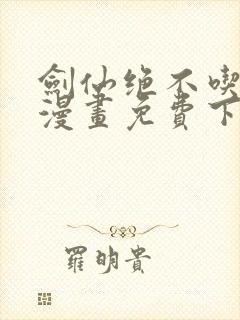 劍仙绝不喫
漫畫免費下
羅明貴